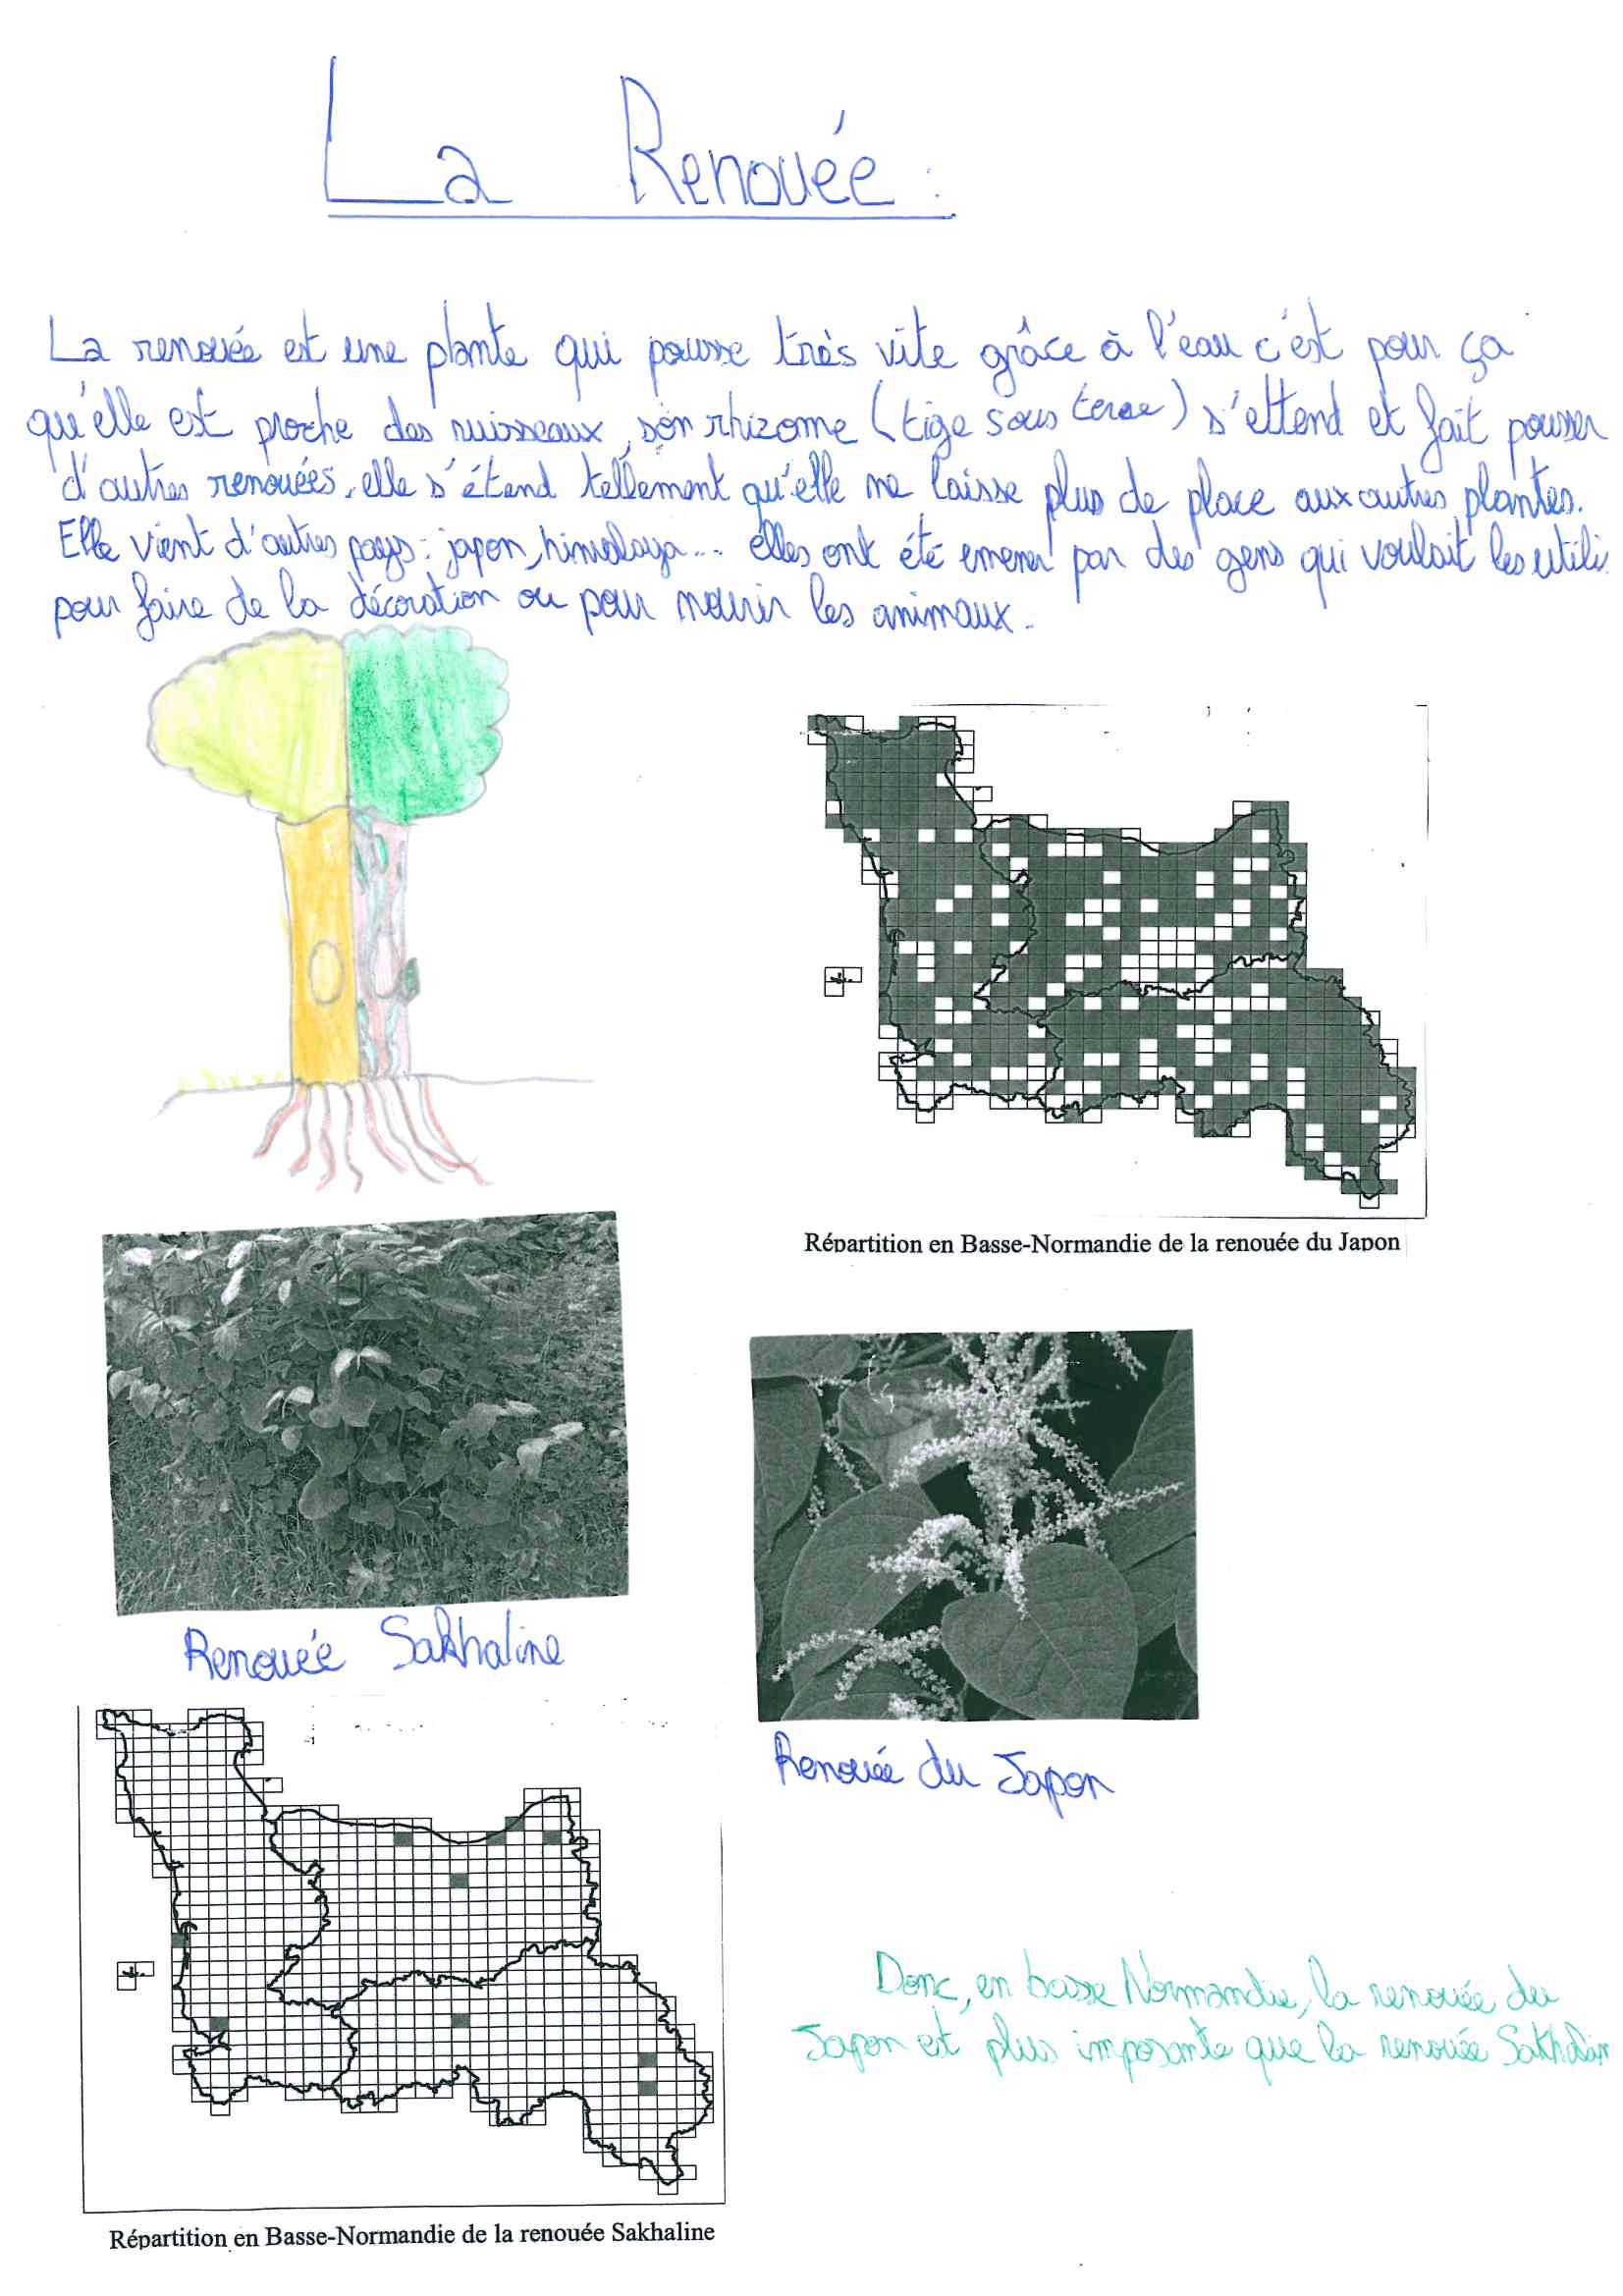 La Renouée :
La renouée est une plante qui pousse très vite grâce à l'eau c'est pour ça
qu'elle est proche des ruisseaux, son rhizome (tige sous terre) s'ettend et fait pousser
d'autres renouées, elle s'étend tellement qu'elle ne laisse plus de place aux autres plantes.
Elle vient d'autres pays : japon, himalaya... elles ont été emener par des gens qui voulait les utilis
pour faire de la décoration ou pour nourir les animaux.
Répartition en Basse-Normandie de la renouée du Japon
Renouée Sakhaline
Renouée du Japon
Répartition en Basse-Normandie de la renouée Sakhaline
Donc, en basse Normandie, la renouée du
Japon est plus imposante que la renouée Sakhalin